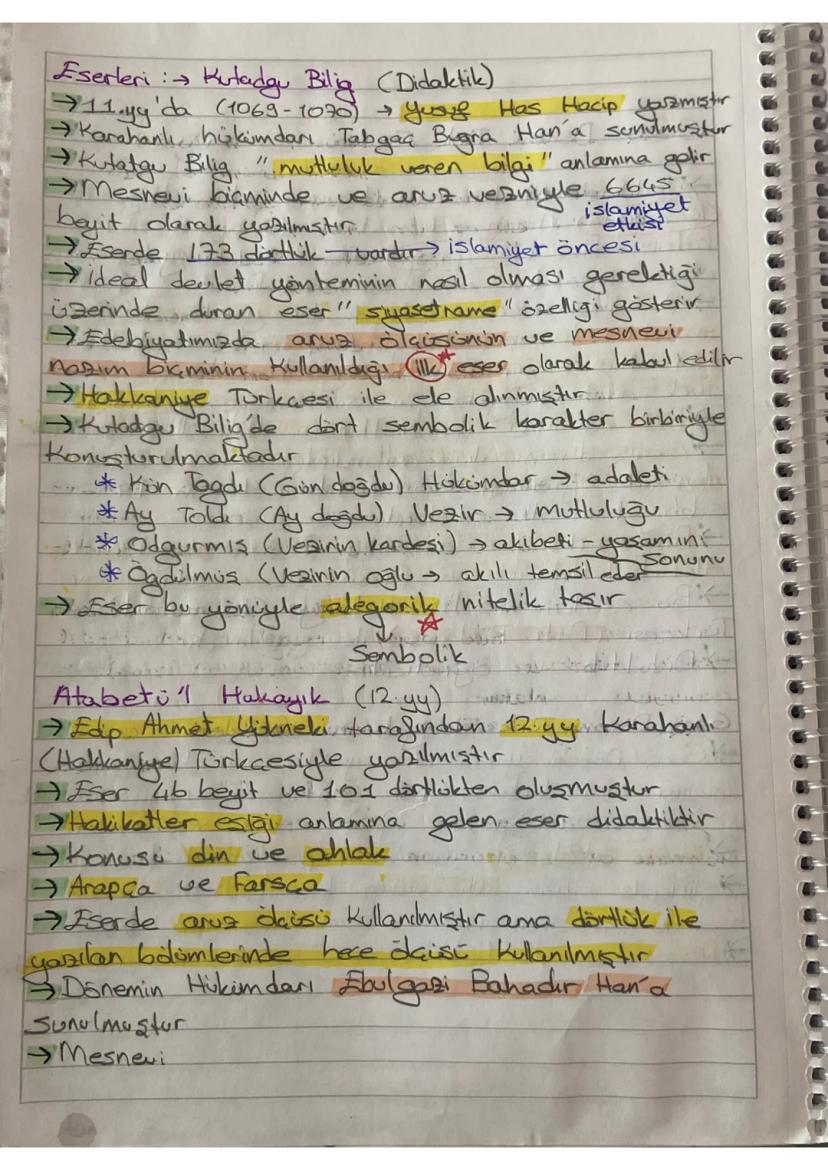 Eserleri :→ Kutadgu Bilig (Didaktik)
→ 11.yy'da (1069-1070) → Yusuf Has Hacip yazmıştır
→ Karahanlı hükümdarı Tabgaç Bugra Han'a sunulmuştur
→ Kutatgu Bilig "mutluluk veren bilgi" anlamına gelir
→ Mesnevi biçminde ve aruz vezniyle 6645
islamiyet etkisi
beyit olarak yazılmıştır
→ Eserde 173 dörtlük vardır → islamiyet öncesi
→ ideal devlet yönteminin nasıl olması gerektiği
üzerinde duran eser "siyasetname" özelliği gösterir
→ Edebiyatımızda aruz ölçüsünün ve mesnevi
nazım biçminin kullanıldığı ilk eser olarak kabul edilir
→ Hakkaniye Türkçesi ile ele alınmıştır
→ Kutadgu Bilig'de dört sembolik karakter birbiriyle
Konuşturulmaktadır
* Kün Togdı (Gün doğdu) Hükümdar → adaleti
* Ay Toldı (Ay doğdu) Vezir → mutluluğu
* Odgurmış (Vezirin kardeşi) → akıbeti - yaşamını
sonunu
* Ögdülmüş (Vezirin oğlu → akılı temsil eder
→ Eser bu yönüyle alegorik nitelik taşır
↓
Sembolik
Atabetü'l Hakayık (12.yy)
→ Edip Ahmet Yükneki tarafından 12.yy Karahanlı
(Hakkaniye) Türkçesiyle yazılmıştır
→ Eser 46 beyit ve 101 dörtlükten oluşmuştur
→ Hakikatler eşiği anlamına gelen eser didaktiktir
→ Konusu din ve ahlak
→ Arapça ve Farsça
→ Eserde aruz ölçüsü kullanılmıştır ama dörtlük ile
yazılan bölümlerinde hece ölçüsü kullanılmıştır
→ Dönemin Hükümdarı Ebulgazi Bahadır Han'a
sunulmuştur
→ Mesnevi